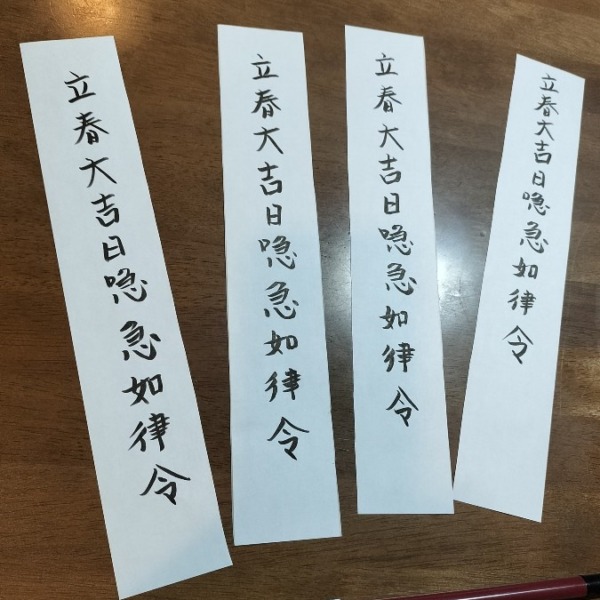 立春大吉日喼急如律令
立春大吉日喼急如律令
立春大吉日喼急如律令
立春大吉日喼急如律令